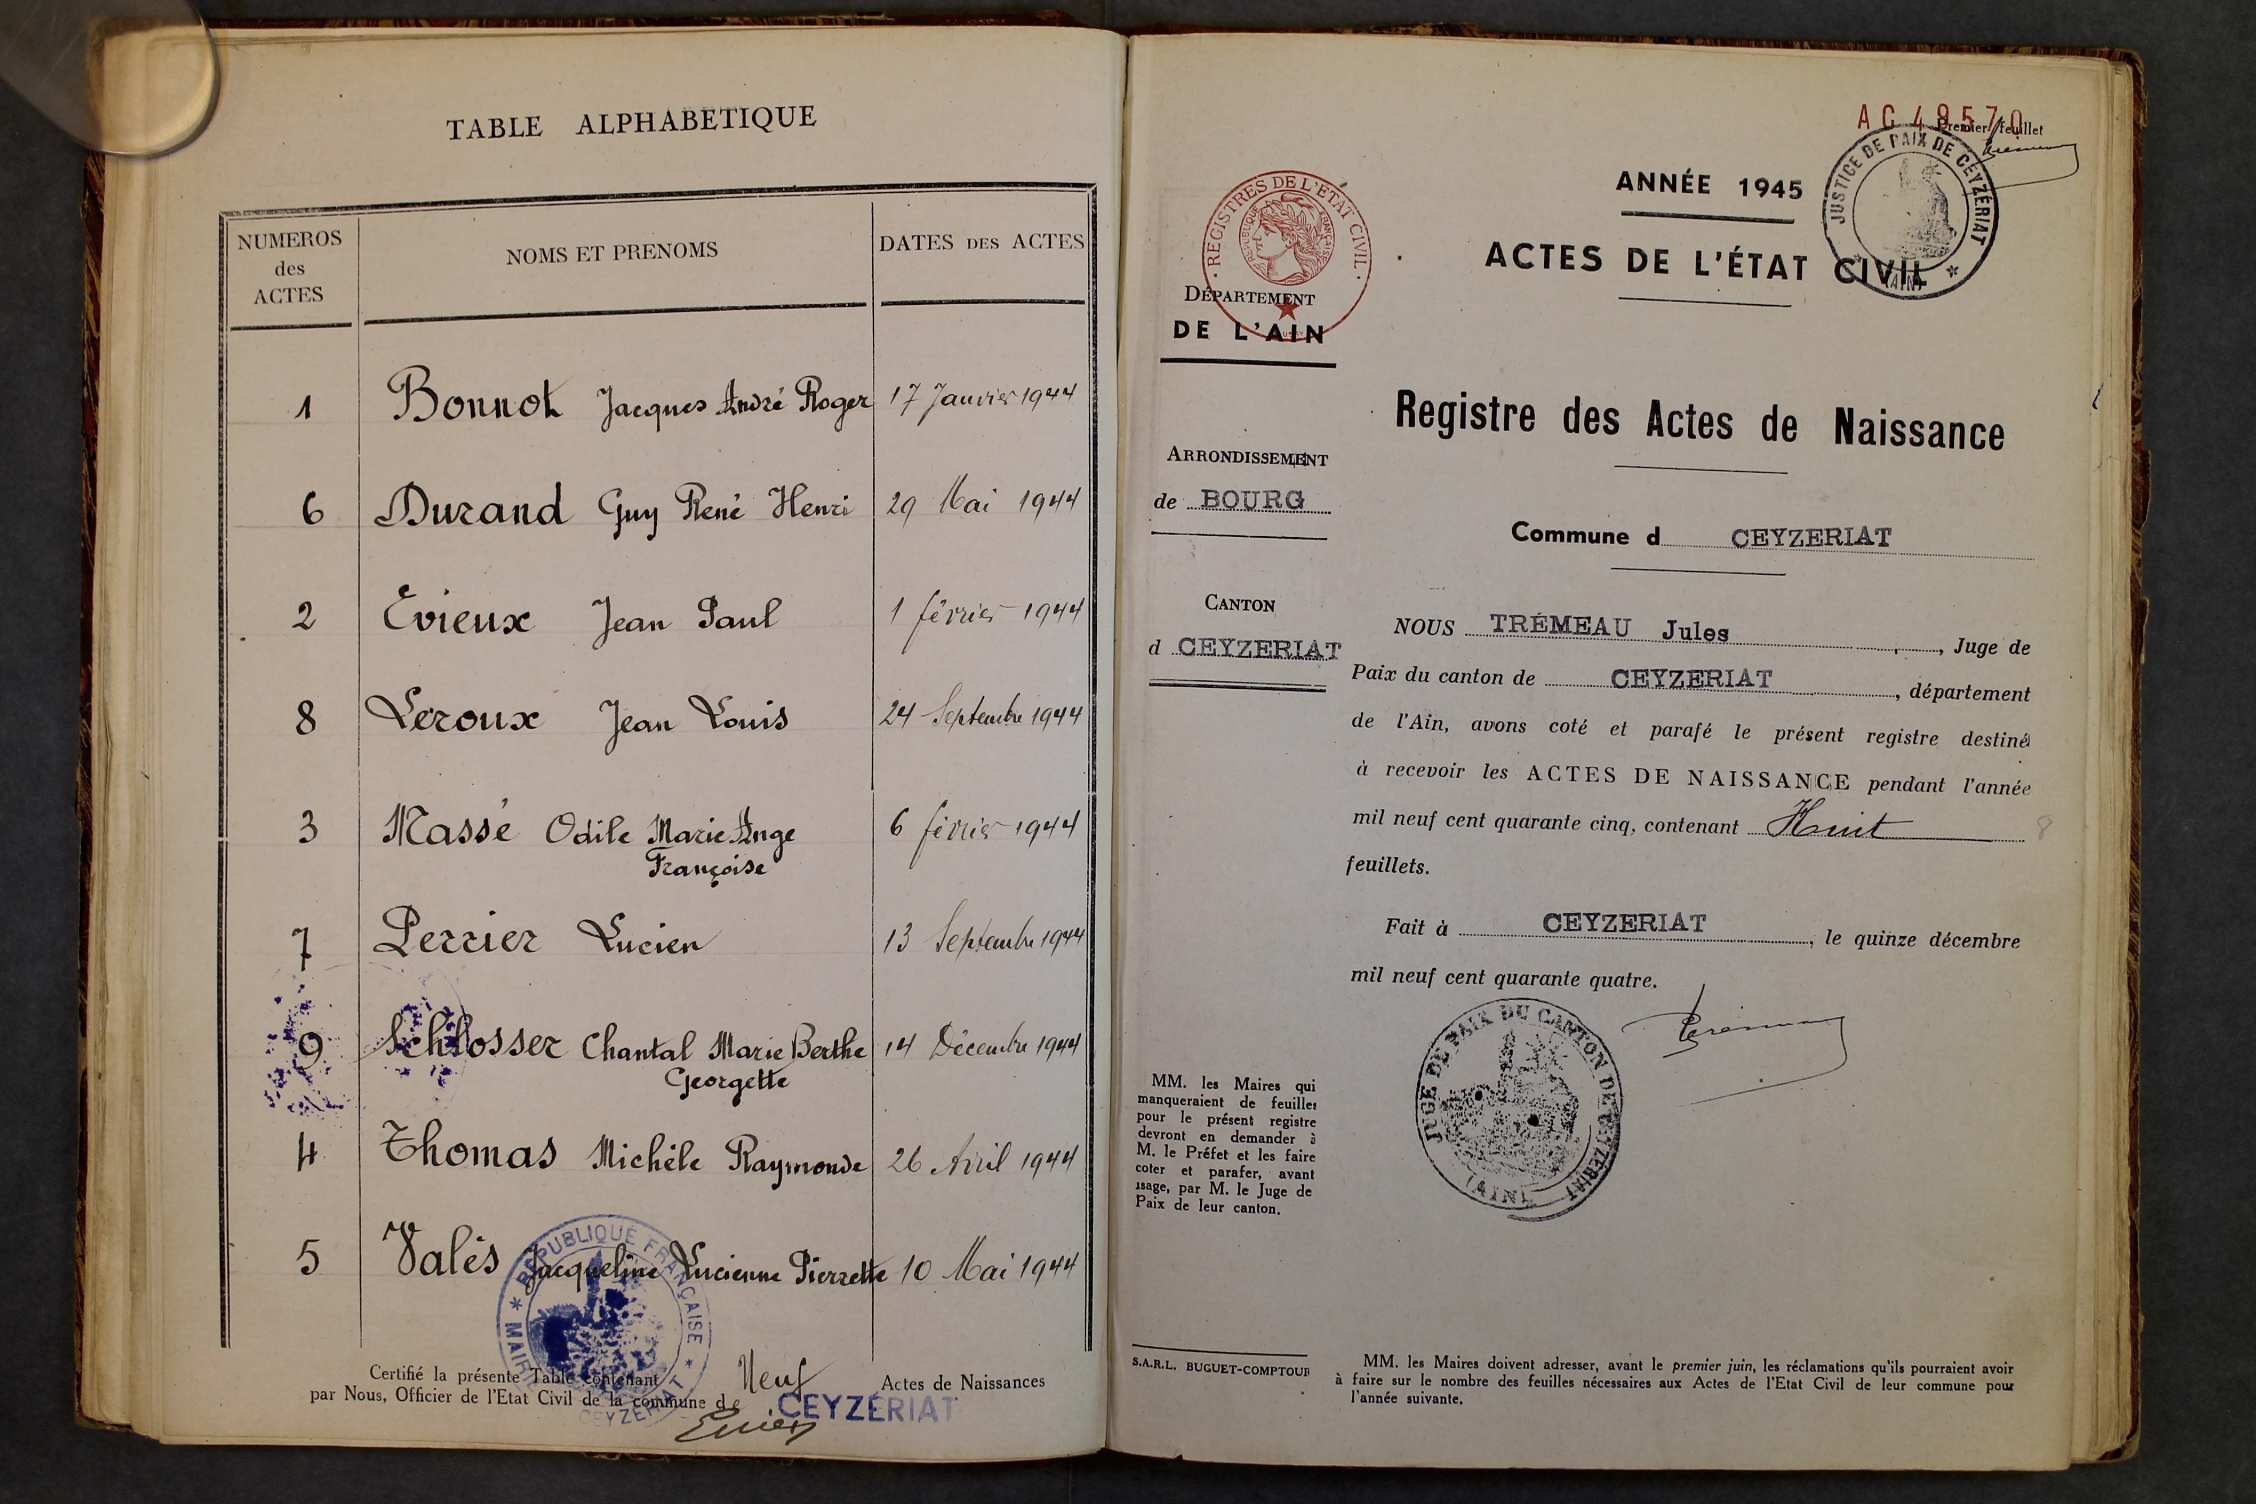 TABLE ALPHABETIQUE
NUMEROS des ACTES
NOMS ET PRENOMS
DATES DES ACTES
1 Bonnot Jacques André Roger 17 Janvier 1944
6 Durand Guy René Henri 29 Mai 1944
2 Evieux Jean Paul 1 février 1944
8 Leroux Jean Louis 24 Septembre 1944
3 Massé Odile Marie Ange 6 février 1944
Françoise
7 Perrier Lucien 13 Septembre 1944
9 Schlosser Chantal Marie Berthe 14 Décembre 1944
Georgette
4 Thomas Michèle Raymonde 26 Avril 1944
5 Valès Jacqueline Lucienne Pierrette 10 Mai 1944
RÉPUBLIQUE FRANÇAISE * MAIRIE * CEYZERIAT
Certifié la présente Table contenant Neuf Actes de Naissances
par Nous, Officier de l'Etat Civil de la commune de CEYZÉRIAT
AC 49570
Premier feuillet
JUSTICE DE PAIX DE CEYZÉRIAT * (AIN) *
REGISTRES DE L'ETAT CIVIL
REPUBLIQUE FRANÇAISE
DÉPARTEMENT
DE L'AIN
ARRONDISSEMENT
de BOURG
CANTON
d CEYZERIAT
MM. les Maires qui
manqueraient de feuilles
pour le présent registre
devront en demander à
M. le Préfet et les faire
coter et parafer, avant
usage, par M. le Juge de
Paix de leur canton.
S.A.R.L. BUGUET-COMPTOUR
ANNÉE 1945
ACTES DE L'ÉTAT CIVIL
Registre des Actes de Naissance
Commune d CEYZERIAT
NOUS TRÉMEAU Jules, Juge de
Paix du canton de CEYZERIAT, département
de l'Ain, avons coté et parafé le présent registre destiné
à recevoir les ACTES DE NAISSANCE pendant l'année
mil neuf cent quarante cinq, contenant Huit 8
feuillets.
Fait à CEYZERIAT, le quinze décembre
mil neuf cent quarante quatre.
JUGE DE PAIX DU CANTON DE CEYZERIAT (AIN)
MM. les Maires doivent adresser, avant le premier juin, les réclamations qu'ils pourraient avoir
à faire sur le nombre des feuilles nécessaires aux Actes de l'Etat Civil de leur commune pour
l'année suivante.